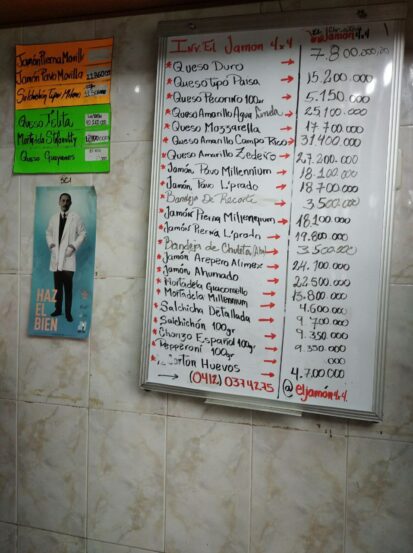 Jamón Pierna Morilla
Jamón Pavo Morilla
Salchichón Tipo Milano
Queso Felita
Mortadela
Queso Guayanes
HAZ
EL
BIEN
Inv. El Jamon 4x4
* Queso Duro → 7.800.000,00
* Queso tipo Paisa → 15.200.000
* Queso Pecorino 100gr → 5.150.000
* Queso Amarillo Agua Linda → 25.100.000
* Queso Mozzarella → 17.700.000
* Queso Amarillo Campo Rico → 31.400.000
* Queso Amarillo Zedeño → 27.200.000
* Jamón Pavo Millennium → 18.100.000
* Jamón Pavo L'prado → 18.700.000
* Bandeja De Recorte → 3.500.000
* Jamón Pierna Millennium → 18.100.000
* Jamón Pierna L'prado → 19.800.000
* Bandeja de Chuleta → 3.500.000
* Jamón Arepero Alimex → 24.700.000
* Jamón Ahumado → 22.500.000
* Mortadela Giacomello → 15.800.000
* Mortadela Millennium → 4.600.000
* Salchicha Detallada → 9.700.000
* Salchichón 100gr → 9.350.000
* Chorizo Español 100gr → 9.350.000
* Pepperoni 100gr → 000
* Cartón Huevos → 4.700.000
→ (0412) 0374275 @eljamón4x4